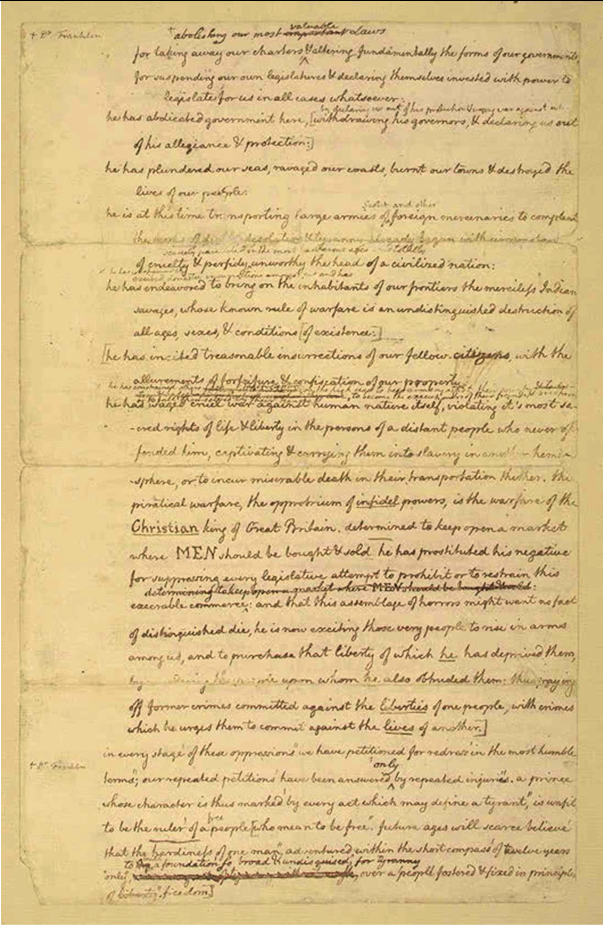 + Dr. Franklin
+abolishing our most important valuable Laws
for taking away our charters & altering fundamentally the forms of our governments
for suspending our own legislatures & declaring themselves invested with power to
legislate for us in all cases whatsoever:
by declaring us out of his protection & waging war against us
he has abdicated government here, [withdrawing his governors, & declaring us out
of his allegiance & protection:]
he has plundered our seas, ravaged our coasts, burnt our towns & destroyed the
lives of our people:
Scotch and other
he is at this time transporting large armies of foreign mercenaries to compleat
the works of death desolation & tyranny already begun with circumstances
scarcely paralleled in the most barbarous ages and totally
of cruelty & perfidy unworthy the head of a civilized nation:
excited domestic insurrections amongst us and has
he has endeavored to bring on the inhabitants of our frontiers the merciless Indian
savages, whose known rule of warfare is an undistinguished destruction of
all ages, sexes, & conditions [of existence:]
[he has incited treasonable insurrections of our fellow citizens, with the
allurements of forfeiture & confiscation of our property.
he has constrained
he has waged cruel war against human nature itself, violating it's most sa-
-cred rights of life & liberty in the persons of a distant people who never of-
fended him, captivating & carrying them into slavery in another hemi-
-sphere, or to incur miserable death in their transportation thither. this
piratical warfare, the opprobrium of infidel powers, is the warfare of the
Christian king of Great Britain. determined to keep open a market
where MEN should be bought & sold he has prostituted his negative
for suppressing every legislative attempt to prohibit or to restrain this
determining to keep open a market where MEN should be bought & sold:
execrable commerce: and that this assemblage of horrors might want no fact
of distinguished die, he is now exciting those very people to rise in arms
among us, and to purchase that liberty of which he has deprived them,
by murdering the people upon whom he also obtruded them: thus paying
off former crimes committed against the liberties of one people, with crimes
which he urges them to commit against the lives of another.]
in every stage of these oppressions we have petitioned for redress in the most humble
only
+ Dr. Franklin
terms; our repeated petitions have been answered by repeated injuries. a prince
whose character is thus marked by every act which may define a tyrant, is unfit
free
to be the ruler of a people [who mean to be free. future ages will scarce believe
that the hardiness of one man, adventured within the short compass of twelve years
to lay a foundation so broad & undisguised, for tyranny
only, over a people fostered & fixed in principles
of liberty freedom.]